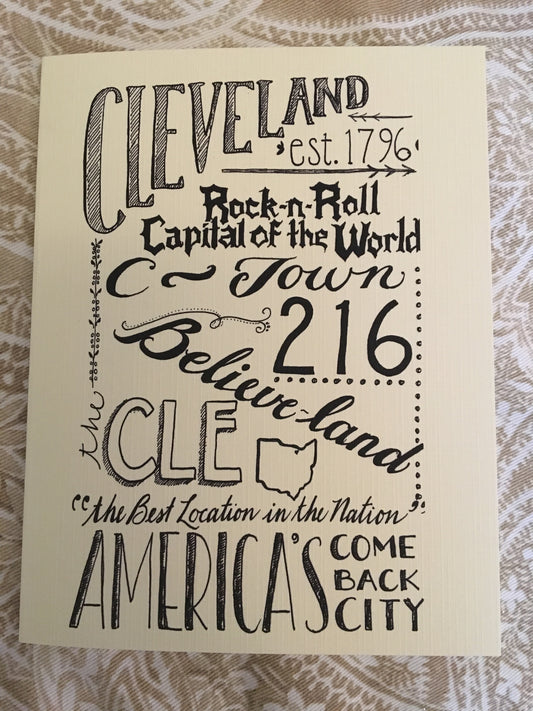 CLEVELAND
est. 1796
Rock-n-Roll
Capital of the World
C~Town
216
Believe-land
the CLE
"the Best Location in the Nation"
AMERICA'S COME
BACK
CITY